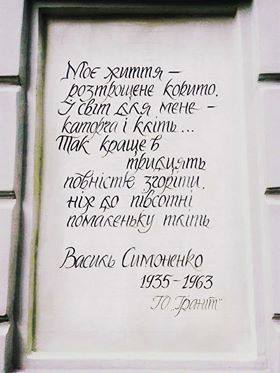 Моє життя –
розтрощене корито.
І світ для мене –
каторга і кліть...
Так краще в
тридцять
повністю згоріти,
ніж до півсотні
помаленьку тліть
Василь Симоненко
1935–1963
ГО "Граніт"